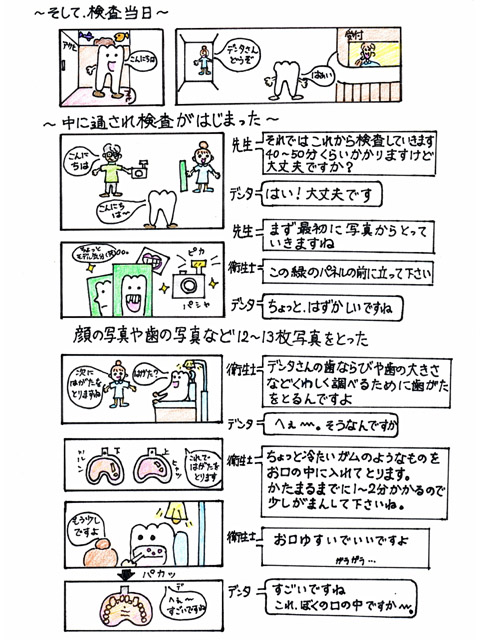 ～そして、検査当日～
アクビ
こんにちは
デンタさん
どうぞ
はぁい
受付
～中に通され検査がはじまった～
こんに
ちは
こんにち
は～
先生
それではこれから検査していきます
40～50分くらいかかりますけど
大丈夫ですか？
デンタ
はい！大丈夫です
先生
まず最初に写真からとって
いきますね
ちょっと
モデル気分（笑）
ピカ
パシャ
衛生士
この緑のパネルの前に立って下さい
デンタ
ちょっと、はずかしいですね
顔の写真や歯の写真など12～13枚写真をとった
次に
はがたを
とりますね
はがた？
衛生士
デンタさんの歯ならびや歯の大きさ
などくわしく調べるために歯がた
をとるんですよ
デンタ
へぇ～。そうなんですか
下
上
ヒャッ
これで
はがたを
とります
衛生士
ちょっと冷たいガムのようなものを
お口の中に入れてとります。
かたまるまでに1～2分かかるので
少しがまんして下さいね。
もう少し
ですよ
衛生士
お口ゆすいでいいですよ
ガラガラ…
パカッ
デ
へぇ～
すごいですね
デンタ
すごいですね
これ、ぼくの口の中ですか～。